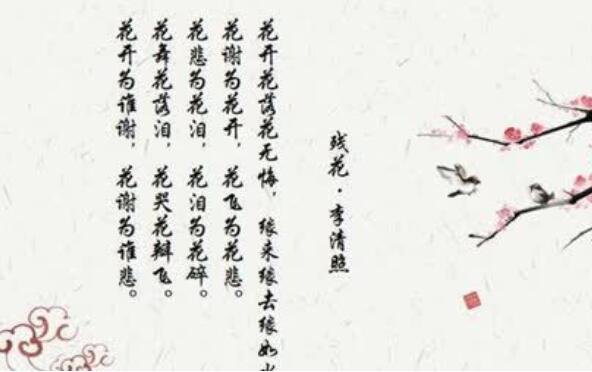 残花·李清照
花开花落花无悔，缘来缘去缘如水
花谢为花开，花飞为花悲。
花悲为花泪，花泪为花碎。
花舞花落泪，花哭花瓣飞。
花开为谁谢，花谢为谁悲。